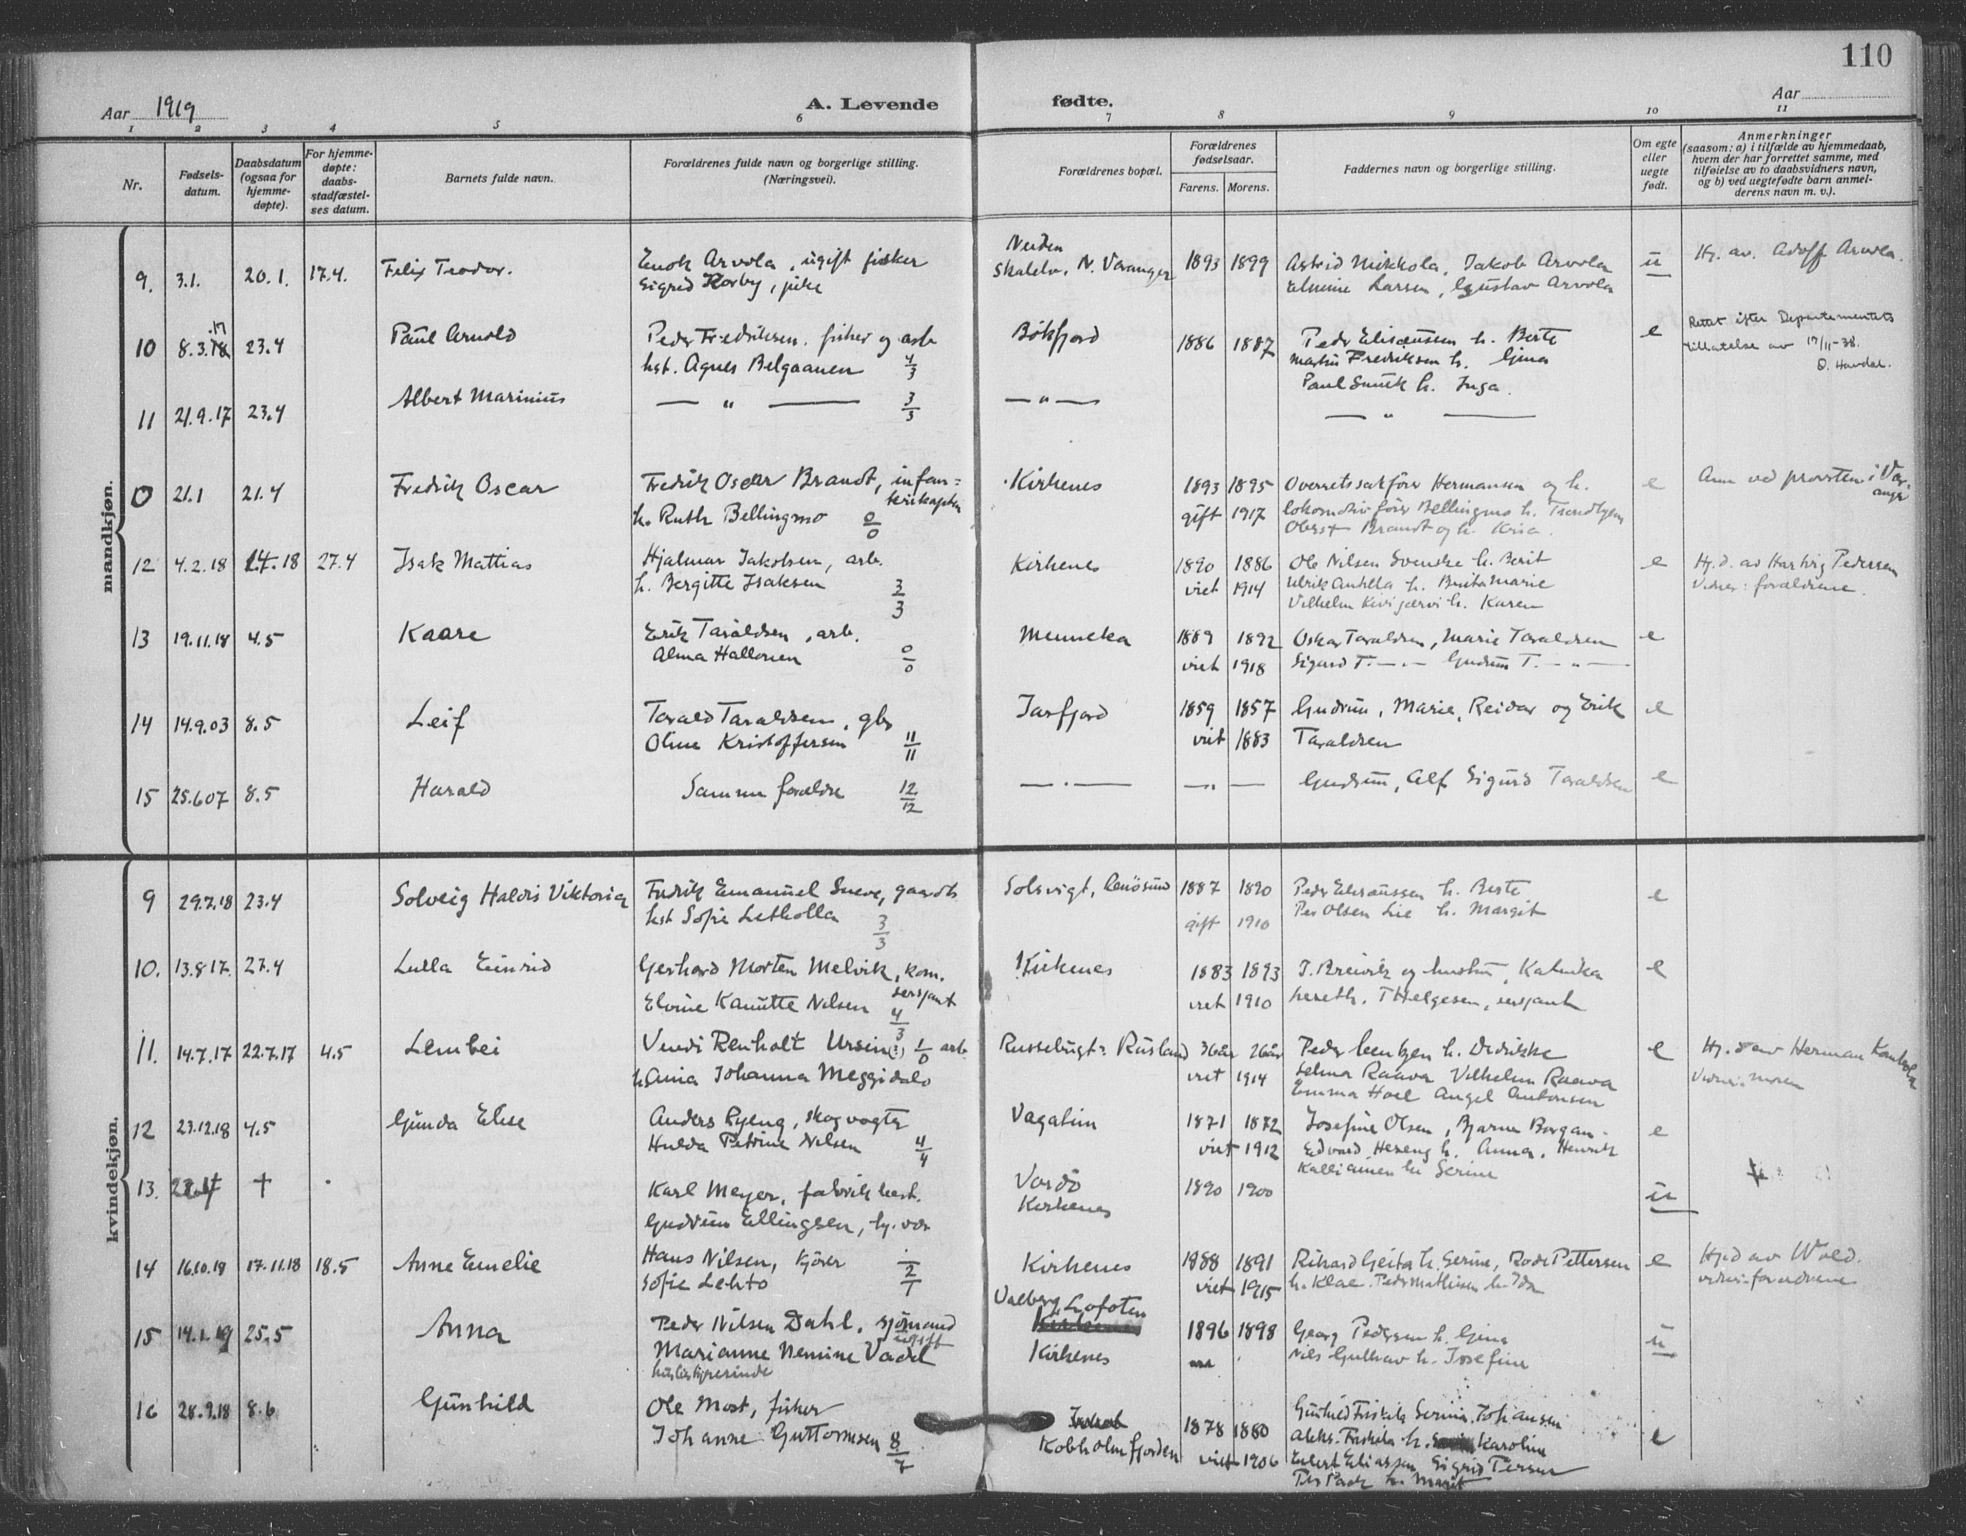 110
Aar 1919 A. Levende fødte. Aar
1 2 3 4 5 6 7 8 9 10 11
Nr. Fødsels-datum. Daabsdatum (ogsaa for hjemme-døpte). For hjemme-døpte: daabs-stadfæstel-ses datum. Barnets fulde navn. Forældrenes fulde navn og borgerlige stilling. (Næringsvei). Forældrenes bopæl. Forældrenes fødselsaar. Farens. Morens. Faddernes navn og borgerlige stilling. Om egte eller uegte født. Anmerkninger (saasom: a) i tilfælde av hjemmedaab, hvem der har forrettet samme, med tilføielse av to daabsvidners navn, og b) ved uegtefødte barn anmel-derens navn m. v.).
mandkjøn.
9. 3.1. 20.1. 17.4. Felix Teodor. Enok Arvola, ugift fisker Neiden 1893 1899 Astrid Mikkola, Jakob Arvola u Hj. av. Adolf Arvola.
Sigred Korby, pike Skalelv, N. Varanger Larsen, Gustav Arvola
10 8.3.18 .17 23.4 Paul Arnold Peder Fredriksen. fisker og arb. Bøkfjord 1886 1887 Peder Elisæussen h. Berte e Rettet efter Departementets
hst. Agnes Belgaanen 4/3 Martin Fredriksen h. Gina tillatelse av 17/11-38.
Paul h. Inga. O. Havdal.
11 21.9.17 23.4 Albert Marinius — " — 3/3 — " — — " —
0 21.1 21.4 Fredrik Oscar Fredrik Oscar Brandt, infan= Kirkenes 1893 1895 Overretssakfører Hermansen og h. e Anm ved provsten i Var-
terikaptein anger
h. Ruth Bellingmo 0/0 gift 1917 lokomotivfører Bellingmo h. Trondhjem
Oberst Brandt og h. Kria.
12 4.2.18 14.18 27.4 Isak Mattias Hjalmar Jakobsen, arb. Kirkenes 1890 1886 Ole Nilsen Svenske h. Berit e Hj.d. av Hartvig Pedersen
h. Bergitte Isaksen 3/3 viet 1914 Ulrik Antilla h. Brita Marie Vidner: forældrene.
Vilhelm Kivijærvi h. Karen
13 19.11.18 4.5 Kaare Erik Taraldsen, arb. Mennika 1889 1892 Oskar Taraldsen, Marie Taraldsen e
Alma Hallonen 0/0 viet 1918 Sigurd T. — " — Gudrun T. — " —
14 14.9.03 8.5 Leif Tarald Taraldsen, gbr Jarfjord 1859 1857 Gudrun, Marie, Reidar og Erik e
Oline Kristoffersen 11/11 viet 1883 Taraldsen
15 25.6.07 8.5 Harald Samme forældre 12/12 — " — — " — Gudrun, Alf Sigurd Taraldsen e
kvindekjøn.
9 29.7.18 23.4 Solveig Haldis Viktoria Fredrik Emanuel Sneve, gaardb. Solsvigt, Renøsund 1887 1890 Peder Elisæussen h. Berte e
hst Sofie Letholla 3/3 gift 1910 Per Olsen Lie h. Margit
10. 13.8.17. 27.4 Lulla Einrid Gerhard Morten Melvik, kom. Kirkenes 1883 1893 J. Breivik og hustru, Katinka e
sersjant
Elvine Kanutte Nilsen 4/3 viet 1910 T Helgesen, sersjant
11. 14.7.17 22.7.17 4.5 Lembei Vendi Renholt Ursin(:) 1/0 arb. Russebugt: Rusland 36 år 26 år Peder h. Didrikke e Hj.d av Herman
h. Ania Johanna Meggidalo viet 1914 Selma Raava Vilhelm Raava Vidner: moren
Emma Hoel Angel Antonsen
12 23.12.18 4.5 Gunda Elise Anders Ryeng, skogvogter Vagatim 1871 1872 Josefine Olsen, Bjarne Borgan- e
Hulda Petrine Nilsen 4/4 viet 1912 Edvard Hereng h. Anna, Henrik
Kalliainen h. Serine
13. † Karl Meyer, fabrik best. Vardö 1890 1900 u
Gudrun Ellingsen, hj. vær Kirkenes
14 16.10.18 17.11.18 18.5 Anne Emelie Hans Nilsen, kjører Kirkenes 1888 1891 Rikard Geita h. Serine, Pettersen e Hj.d av Wold.
Sofie Lehto 2/1 viet 1915 h. Klae. Peder Mathisen h. Ida vidner: forældrene
15 14.1.19 25.5 Anna Peder Nilsen Dahl, sjømand Valberg Lofoten 1896 1898 Georg Pedersen h. Gina u
ugift
Marianne Nemine Vadet Kirkenes Nils Gulhav h. Josefine
husbestyrerinde
16 28.9.18 8.6 Gunhild Ole Most, fisker 1878 1880 Gunhild Friskila Serina Johansen e
Johanne Guttormsen 8/7 Kobholmfjorden viet 1906 Aleks. Friskila h. Karoline
Edvert Eliassen, Sigrid Persen
h. Marit